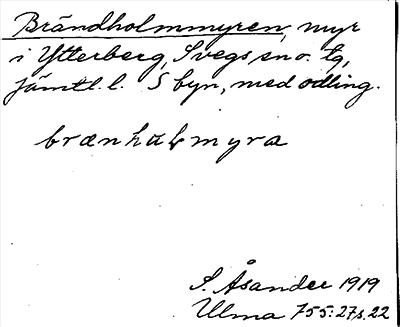 Brändholmmyren, myr
i Ytterberg, Svegs sn o. tg,
Jämtl. l. S byn, med odling.
brænhɷɫmyra
S. Åsander 1919
Ulma 755:27 s. 22